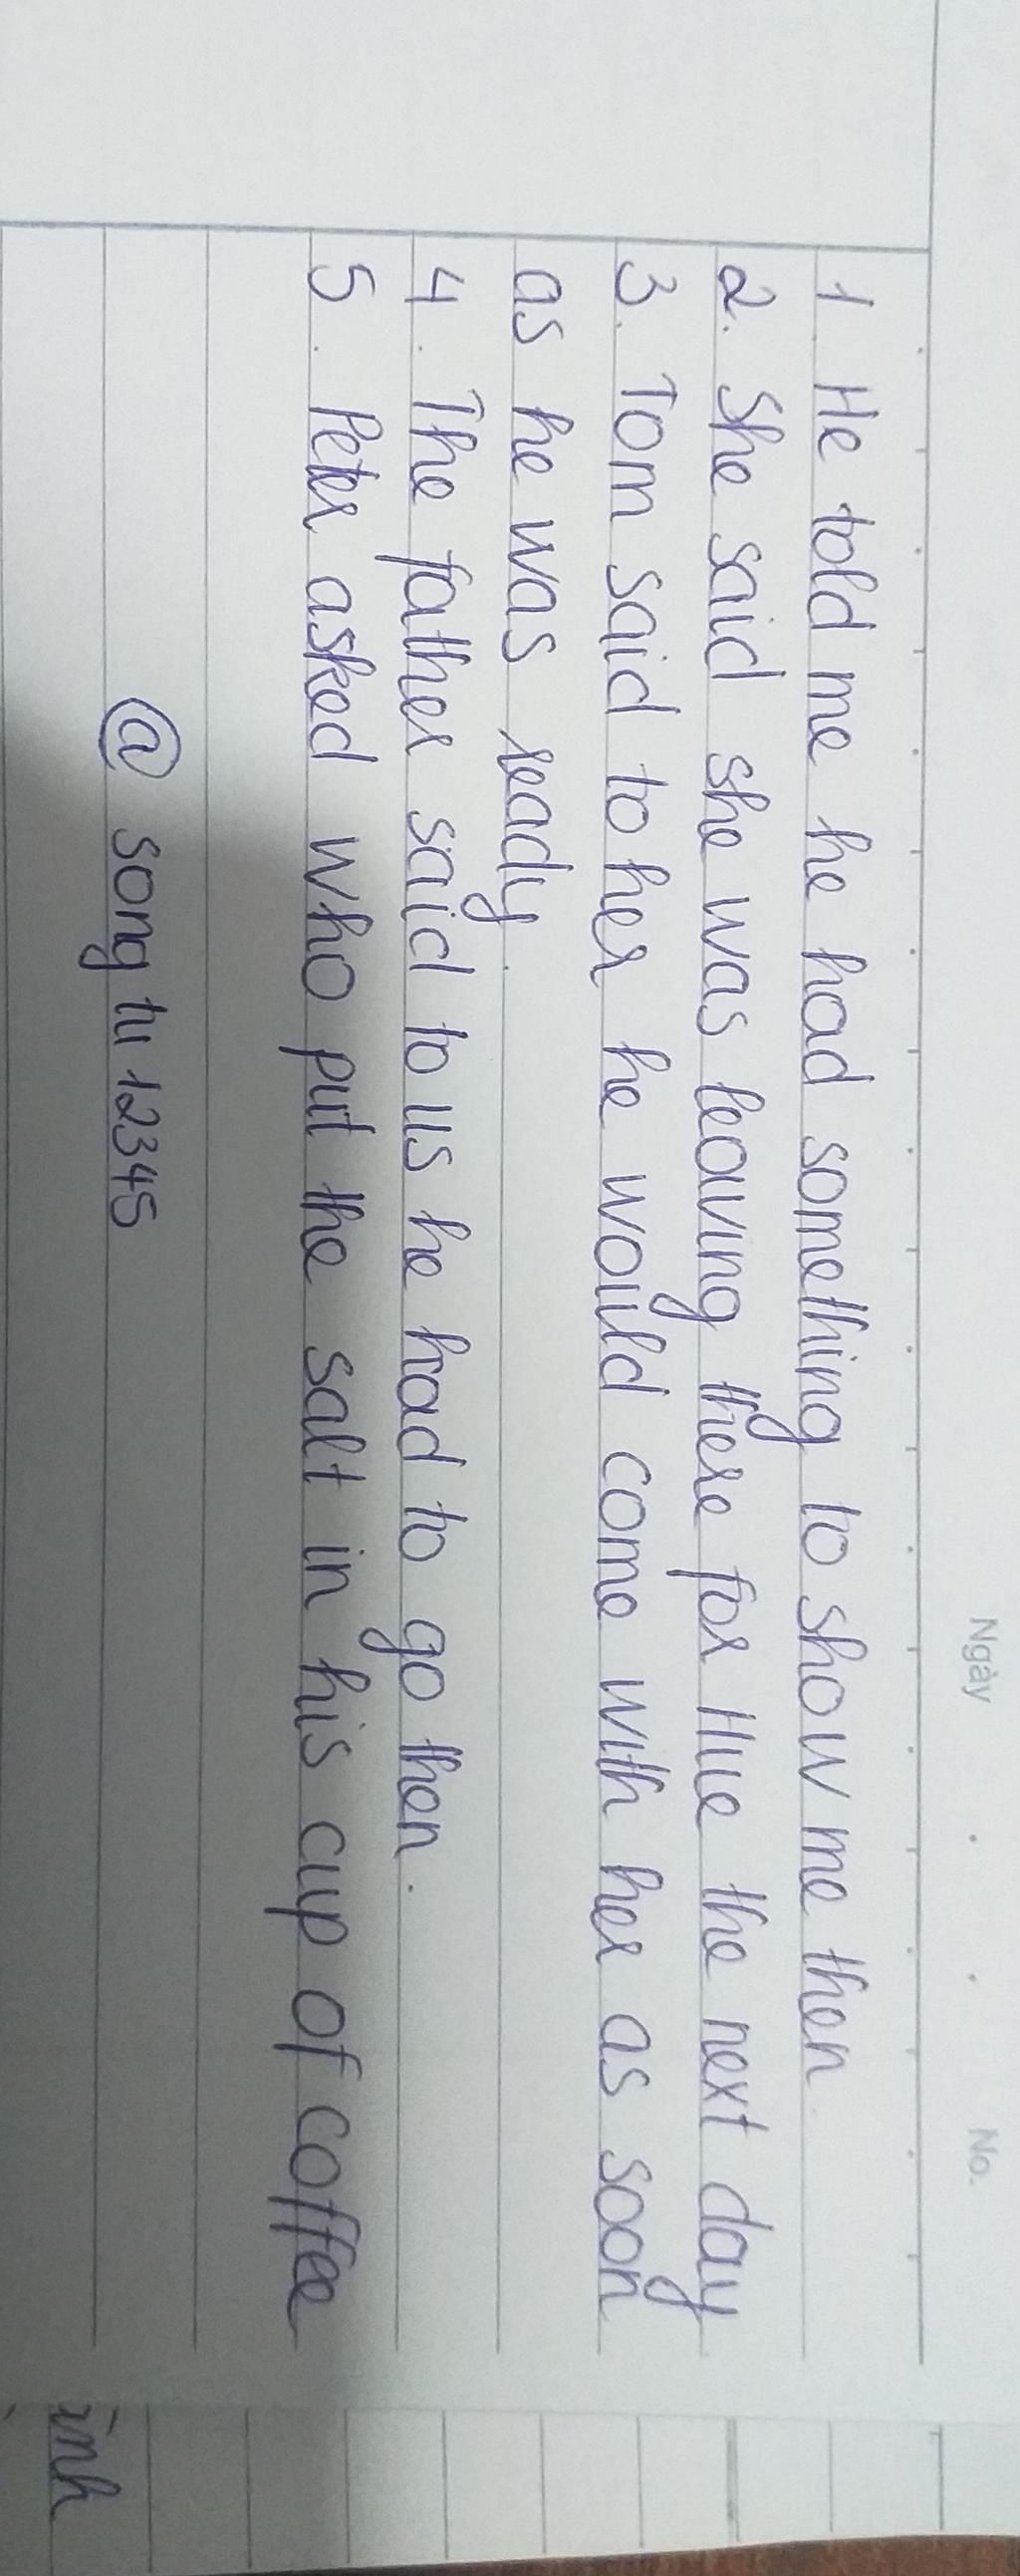 Ngày . . No.
1. He told me he had something to show me then
2. She said she was leaving there for Hue the next day
3. Tom said to her he would come with her as soon
as he was ready.
4. The father said to us he had to go then.
5. Peter asked who put the salt in his cup of coffee
@ song tu 12345
inh